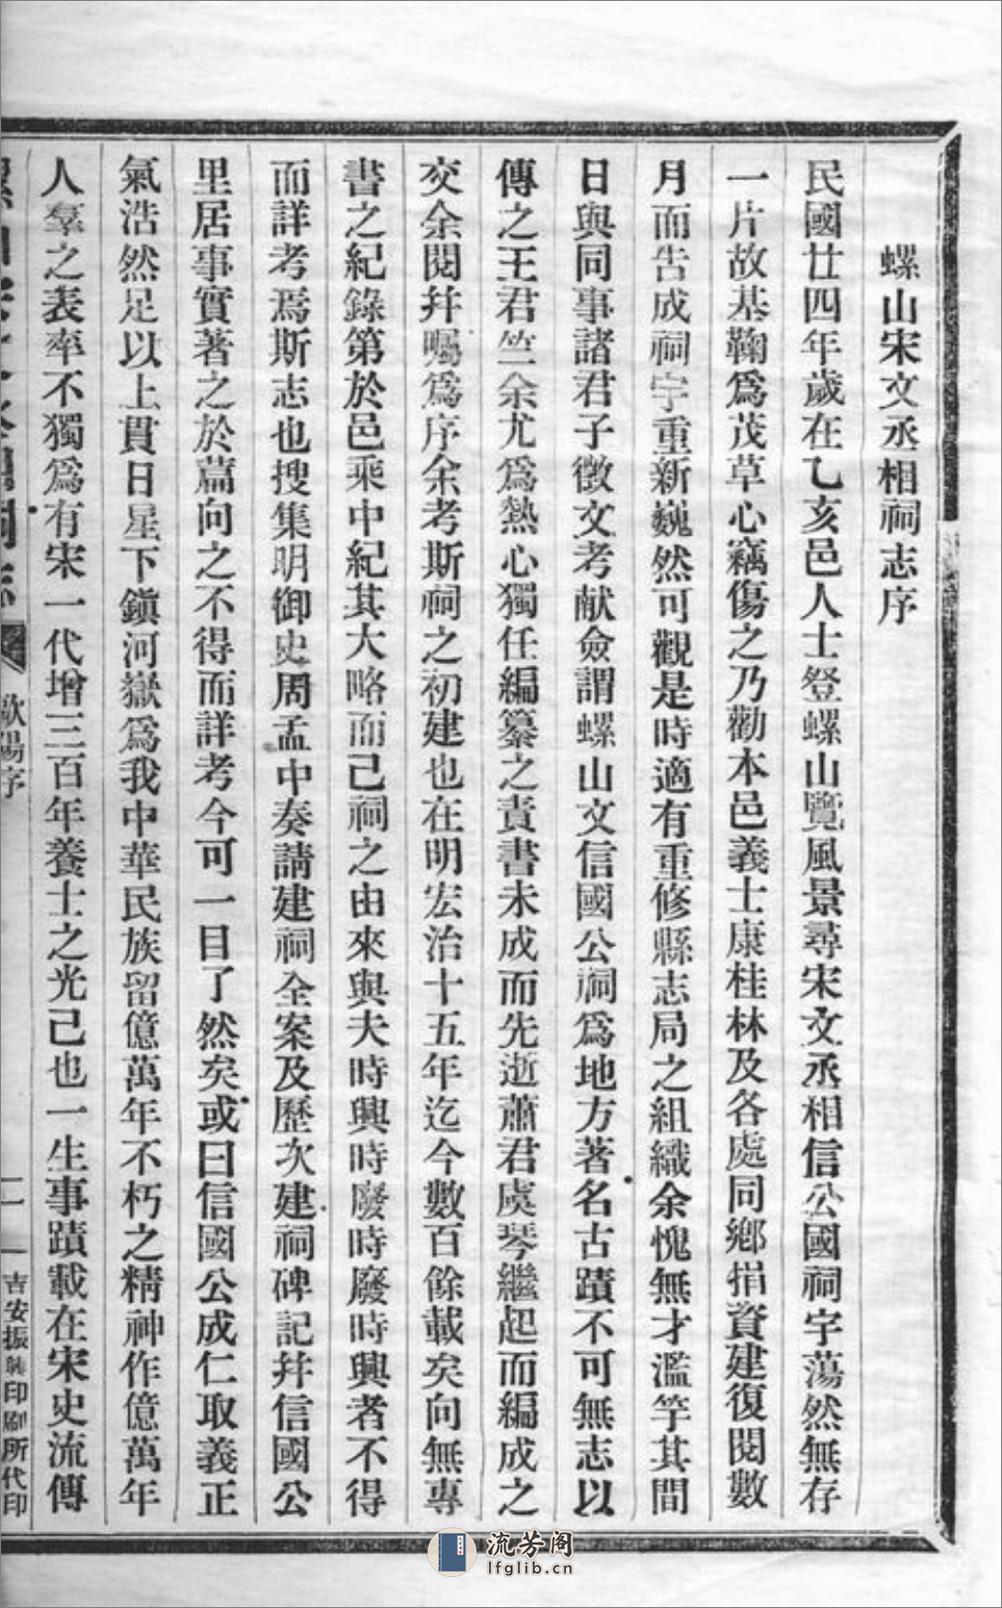 螺山宋文丞相祠志序
民國廿四年歲在乙亥邑人士登螺山覽風景尋宋文丞相信公國祠宇蕩然無存
一片故基鞠爲茂草心竊傷之乃勸本邑義士康桂林及各處同鄉捐資建復閱數
月而告成祠宇重新巍然可觀是時適有重修縣志局之組織余愧無才濫竽其間
日與同事諸君子徵文考献僉謂螺山文信國公祠爲地方著名古蹟不可無志以
傳之王君竺余尤爲熱心獨任編纂之責書未成而先逝蕭君虞琴繼起而編成之
交余閱幷囑爲序余考斯祠之初建也在明宏治十五年迄今數百餘載矣向無專
書之紀錄第於邑乘中紀其大略而己祠之由來與夫時興時廢時廢時興者不得
而詳考焉斯志也搜集明御史周孟中奏請建祠全案及歷次建祠碑記幷信國公
里居事實著之於篇向之不得而詳考今可一目了然矣或曰信國公成仁取義正
氣浩然足以上貫日星下鎭河嶽爲我中華民族留億萬年不朽之精神作億萬年
人羣之表率不獨爲有宋一代增三百年養士之光己也一生事蹟載在宋史流傳
歐陽序
一
吉安振興印刷所代印
流芳阁
lfglib.cn